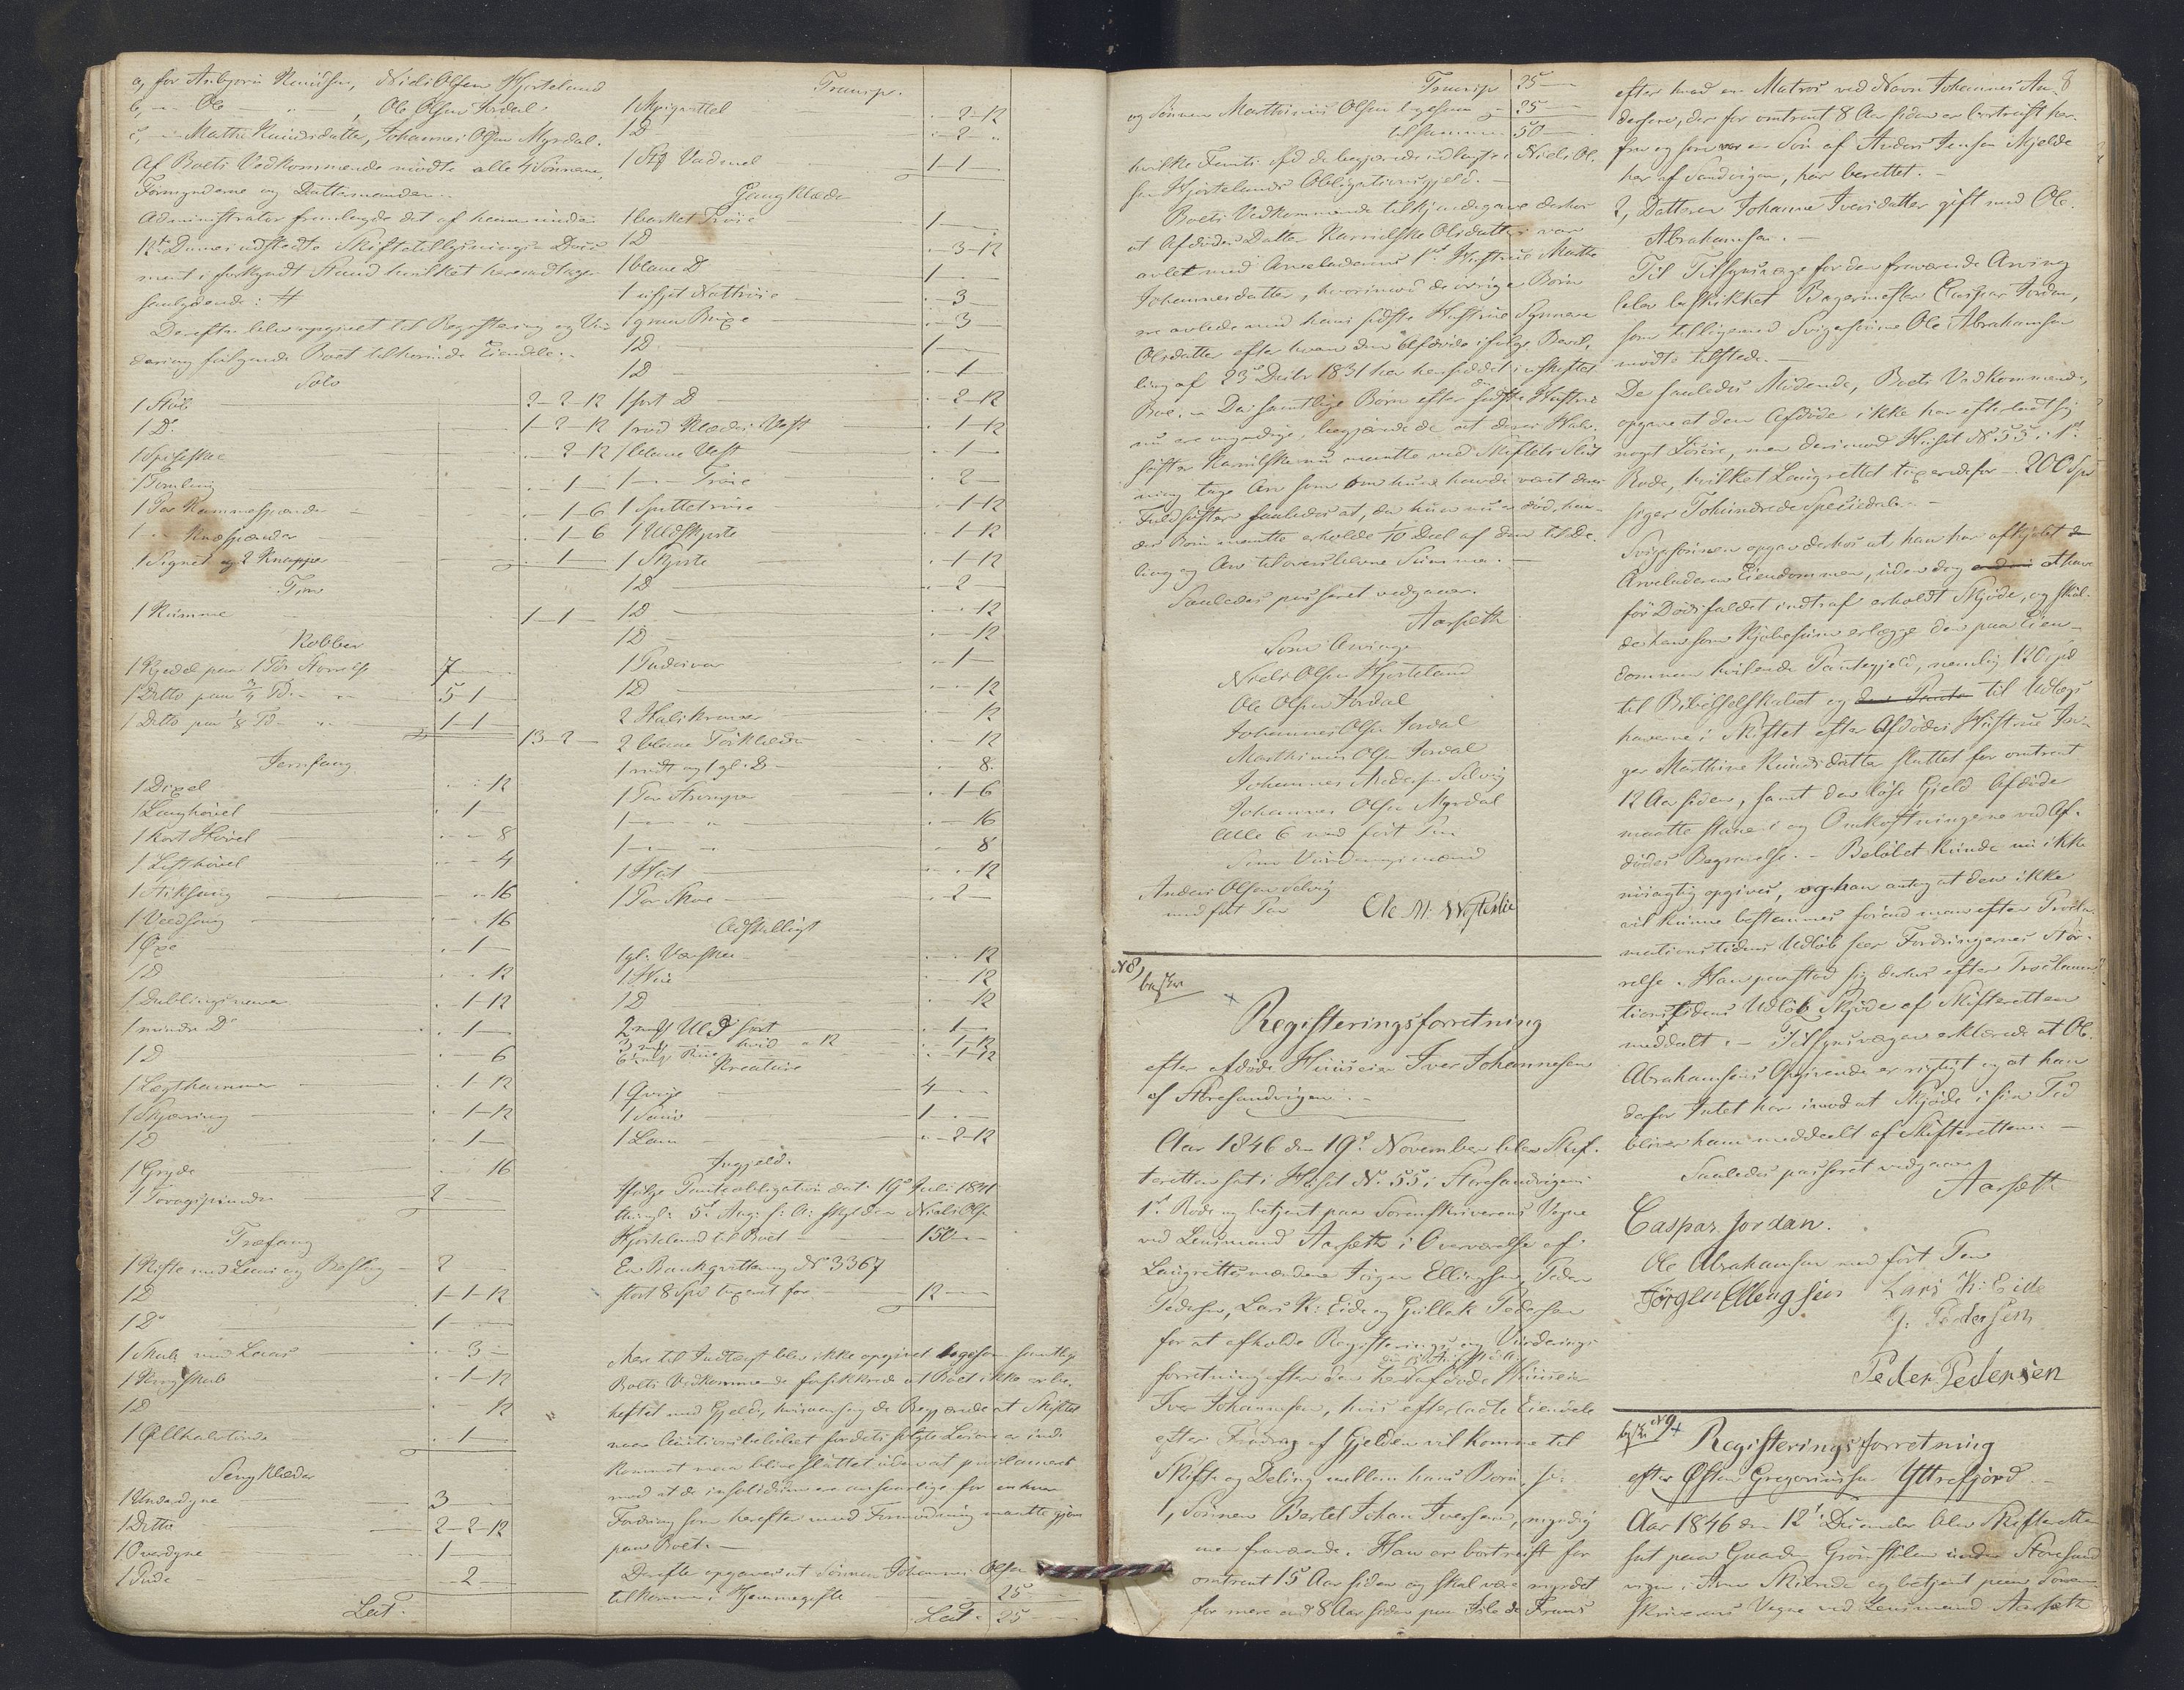 a, for Anbjørn Knudsen, Niels Olsen Hjorteland
b, — Ole — " , Ole Olsen Jordal
c, — Mathe Knudsdatter, Johannes Olsen Myrdal.
Af Boets Vedkommende mødte alle 4 Sønnerne,
Formynderne og Dattermanden.
Administrator fremlagde det af ham under
12te Dennes udstedte Skiftetillysnings Docu-
ment i forkyndt Stand hvilket herved tages
saalydende: #
Derefter blev opgivet til Registering og Vur-
dering følgende Boet tilhørende Eiendele:
Sølv
1 Støb 2-2-12
1 Do 1-2-12
1 Spiseskee - 2-12
1 Fomling - 1 -
1 Par Remmespænder - 1-6
1 " Knæspænder - 1-6
1 Signet og 2 Knapper - 1 -
Tin
1 Kumme 1-1-
Kobber
1 Kjedel paa 1 Tør Størrelse 7
1 Ditto paa 3/4 Td. 5-1-
1 Ditto paa 1/8 Td 1-1-
13-2-
Jernfang
1 Dixel - - 12
1 Langhøvel - 1 -
1 kort Høvel - - 8
1 Listhøvel - - 4
1 Stiksaug - - 16
1 Veedsaug - - 16
1 Øxe - 1 -
1 D - - 12
1 Dublingsnaver - 1-12
1 mindre Do - 1 -
1 D - - 6
1 Lægthammer - 1-12
1 Skjæring - 1-12
1 D - 1 -
1 Gryde - - 16
1 Tovogspinde 2
Træfang
1 Kiste med Laas og Beslag 2
1 D 1-1-12
1 Do 1
1 Skab med Laas - 3 -
1 Ringskab - 1-12
1 D - - 12
1 Øllhalvtønde - 1 -
Sengklæder
1 Underdyne 3
1 Ditto 2-2-12
1 Overdyne 1
1 Pude - 2 -
Lat.
Transp.
- 2-12
1 D - 2 -
1 Stk Vadmel 1-1-
Gangklæder
1 basket Trøie 1
1 D - 3-12
1 blaae D 1
1 ufyet Nattrøie - 3 -
1 graa Buxe - 3 -
1 D 1
1 D - 1
1 sort D - 2-12
1 rød Klædes Vest - 1-12
1 blaae Vest - 1 -
1 — Trøie - 2 -
1 Sputtetrøie - 1-12
1 Uldskjorte - 1-12
1 Skjorte - 1-12
1 D - 2 -
1 D - - 12
1 D - - 12
1 Pudevar - 1 -
1 D - - 12
2 Halskraver - 12
2 blaae Tørklæder - 12
1 rødt og 1 gl. D - 8
1 Par Strømper - 1-6
1 — " - 16
1 — " - 8
1 Hat - - 12
1 Par Skoe - 2 -
Adskilligt
1 gl. Værsker - - 12
1 Hue - - 12
1 D - - 12
2 mrk Uld sort - 1 -
3 mrk hvid a 12 - 1-12
- 1-12
Kreature
1 Qvige 4
1 Souv 1
1 Lam - 2-12
Ingjeld.
Ifølge Panteobligation dat. 19de Juli 1841
thingl. 5te Aug. s. A. skylder Niels Ols.
Hjorteland til Boet 150
En Bankqvittering No 3367
stort 8 Spd taxeret for 12
Mere til Indtægt blev ikke opgivet ligesom samtlige
Boets Vedkommende forsikkrede at Boet ikke er be-
heftet med Gjeld, hvisaarsag de begjærede at Skiftet
naar Auctionsbeløbet for det solgte Løsøre er ind-
kommet maa blive sluttet uden at proclameres
mod at de insolidum ere ansvarlige for enhver
Fordring som herefter med Formodning maatte gjøres
paa Boet. —
Derefter opgaves at Sønnen Johannes Olsen
tilkommer i Hjemmegifte 25
Lat. 25
Transp 25 —
og Sønnen Marthinus Olsen ligesaa 25
tilsammen 50 —
hvilke Femti Spd de begjærede udlagte i Niels Ol-
sen Hjortelands Obligationsgjeld. —
Boets Vedkommende tilkjendegave derhos
at Afdødes Datter Karnilske Olsdatter var
avlet med Arveladerens 1ste Hustrue Mathe
Johannesdatter, hvorimod de øvrige Børn
ere avlede med hans sidste Hustrue Synneve
Olsdatter efter hvem den Afdøde ifølge Bevil-
ling af 23de Decbr 1831 har hensiddet i uskiftet
Boe. — Da samtlige Børn efter sidste Hustrue
nu ere myndige, begjærede de at deres Halv-
søster Karnilske nu maatte ved Skiftets Slut-
ning tage Arv som om hun havde været deres
Fuldsøster saaledes at, da hun nu er død, hen-
des Børn maatte erholde 1/10 Deel af den til De-
ling og Arv tiloversblevne Summa. —
Saaledes passeret vedgaaer.
Aarsæth
Som Arvinge
Niels Olsen Hjorteland
Ole Olsen Jordal
Johannes Olsen Jordal
Marthinus Olsen Jordal
Johannes Andersen Selvig
Johannes Olsen Myrdal
Alle 6 med ført Pen
Som Vurderingsmænd
Anders Olsen Selvig
med ført Pen
Ole M: Westerlie
N8,
Registeringsforretning
efter afdøde Huuseier Iver Johannesen
af Storesandvigen. —
Aar 1846 den 19de November blev Skif-
teretten sat i Huset No 55 i Storesandvigens
1ste Rode og betjent paa Sorenskriverens Vegne
ved Lensmand Aarsæth i Overværelse af
Laugrettesmændene Jørgen Ellingsen, Peder
Pedersen, Lars K: Eide og Gullak Pedersen
for at afholde Registerings og Vurderings-
forretning efter den her afdøde Huuseier
Iver Johannesen, hvis efterladte Eiendele
efter Fradrag af Gjelden vil komme til
Skifte og Deling mellem hans Børn, s:
1, Sønnen Bertel Johan Iversen, myndig
men fraværende. Han er bortreist for
omtrent 15 Aar siden og skal være myrdet
for mere end 8 Aar siden paa Isle de Frans
efter hvad en Matros ved Navn Johannes An- 8
dersen, der for omtrent 8 Aar siden er bortreist her-
fra og som var en Søn af Anders Jensen Mjelde
her af Sandvigen, har berettet. —
2, Datteren Johanne Iversdatter gift med Ole
Abrahamsen. —
Til Tilsynsværge for den fraværende Arving
blev beskikket Bagermester Caspar Jordan,
som tilligemed Svigersønnen Ole Abrahamsen
mødte tilstede. —
De saaledes Mødende, Boets Vedkommende,
opgave at den Afdøde ikke har efterladt sig
noget Løsøre, men derimod Huset No 55 i 1ste
Rode, hvilket Laugrettet taxerede for 200 Spd
siger Tohundrede Speciedaler. —
Svigersønnen opgav derhos at han har afkjøbt
Arveladeren Eiendommen, uden dog at have
før Dødsfaldet indtraf erholdt Skjøde, og skul-
de han som Kjøbesum erlægge den paa Eien-
dommen hvilende Pantegjeld, nemlig 120 spd
til Bibelselskabet og den Pante til Udlægs-
haverne i Skiftet efter Afdødes Hustrue In-
ger Marthine Knudsdatter sluttet for omtrent
12 Aar siden, samt den løse Gjeld Afdøde
maatte staae i og Omkostningerne ved Af-
dødes Begravelse. — Beløbet kunde nu ikke
nøiagtig opgives, og han antog at den ikke
vil kunne bestemmes førend man efter Procla-
mationstidens Udløb seer Fordringernes Stør-
relse. Han paastod sig derhos efter Proclama-
tionstidens Udløb Skjøde af Skifteretten
meddeelt. — Tilsynsværgen erklærede at Ole
Abrahamsens Opgivende er rigtigt og at han
derfor Intet har imod at Skjøde i sin Tid
bliver ham meddeelt af Skifteretten. —
Saaledes passeret vedgaaer
Aarsæth
Caspar Jordan.
Ole Abrahamsen med ført Pen
Jørgen Ellengsen Lars K: Eide
G. Pedersen
Peder Pedersen
N9
Registeringsforretning
efter Østen Gregoriussen Yttrefjord. —
Aar 1846 den 12te December blev Skifteretten
sat paa Gaarden Grønstølen under Storesand-
vigen i Arne Skibrede og betjent paa Soren-
skriverens Vegne ved Lensmand Aarsæth